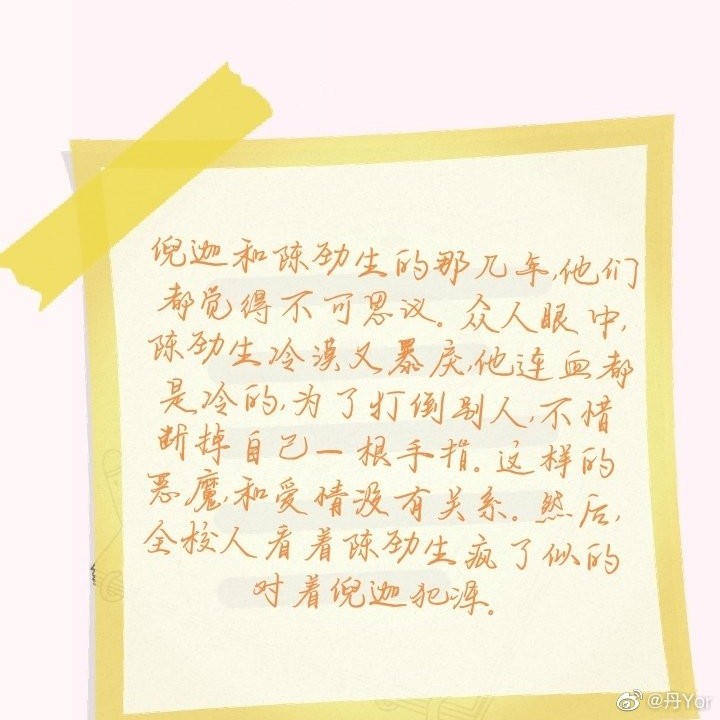 倪迦和陈劲生的那几年,他们
都觉得不可思议。众人眼中,
陈劲生冷漠又暴戾,他连血都
是冷的,为了打倒别人,不惜
断掉自己一根手指。这样的
恶魔,和爱情没有关系。然后,
全校人看着陈劲生疯了似的
对着倪迦犯浑。
@丹Yor